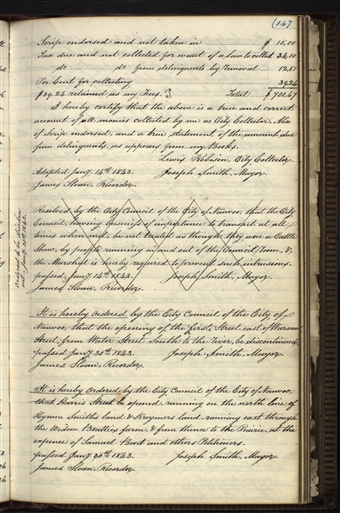 (147
Scrip endorsed and not taken in $ 18,00
Tax due and not collected for want of a Law to collect 34,10
do do from delinquents by Removal 12,51
Per Cent for collecting 39,24
$39.24 retained as my Fees. Total $701,47
I hereby certify that the above is a true and correct
amount of all monies collected by me as City Collector. Also
of Scrip endorsed, and a true statement of the amount due
from delinquents, as appears from my Books.
Lewis Robison, City Collector.
Adopted Jany. 14th 1843. Joseph Smith, Mayor.
James Sloan, Recorder.
Resolved by the City Council of the City of Nauvoo, that the City
Council, having business of importance to transact at all
times when met, be not treated as though they were a Cattle
Show, by people running in and out of the Council Room, &
the Marshal is hereby required to prevent such intrusions.
passed Jany. 14th 1843. Joseph Smith, Mayor.
James Sloan, Recorder.
It is hereby Ordered by the City Council of the City of
Nauvoo, that the opening of the first Street east of Warsaw
Street, from Water Street South to the River, be discontinued.
passed Jany. 30th 1843. Joseph Smith, Mayor.
James Sloan, Recorder.
It is hereby Ordered by the City Council of the City of Nauvoo,
that Harris Street be opened, running on the north line of
Hyrum Smiths land & Kreymers land, running east through
the Widow Beatties farm, & from thence to the Prairie, at the
expence of Samuel Bent and others Petitioners.
passed Jany. 30th 1843. Joseph Smith, Mayor
James Sloan, Recorder